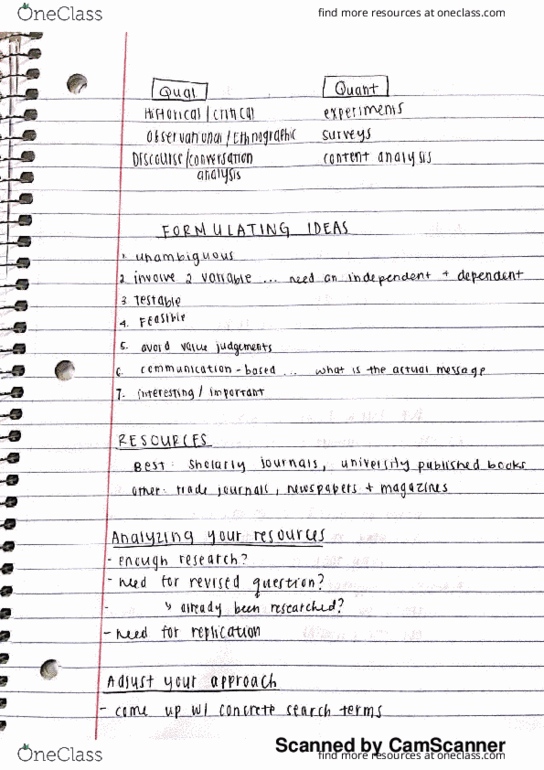 OneClass
find more resources at oneclass.com
Qual Quant
Historical / critical experiments
Observational / Ethnographic surveys
Discourse/conversation content analysis
analysis
FORMULATING IDEAS
1. unambiguous
2. involve 2 variable ... need an independent + dependent
3. Testable
4. Feasible
5. avoid value judgements
6. communication-based ... what is the actual message
7. interesting / important
RESOURCES
Best: Sholarly journals, university published books
other: trade journals, newspapers + magazines
Analyzing your resources
- enough research?
- need for revised question?
- ↳ already been researched?
- need for replication
Adjust your approach
- come up w/ concrete search terms
Scanned by CamScanner
OneClass
find more resources at oneclass.com